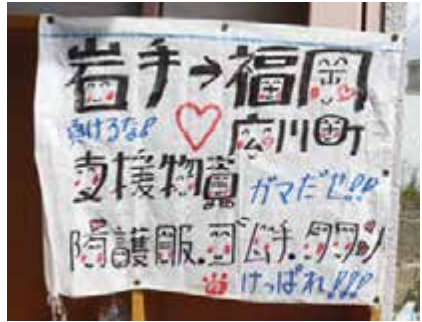 岩手→福岡
負けるな!!
広川町
支援物資 ガマだせ!!!
防護服.ゴム手.
けっぱれ!!!